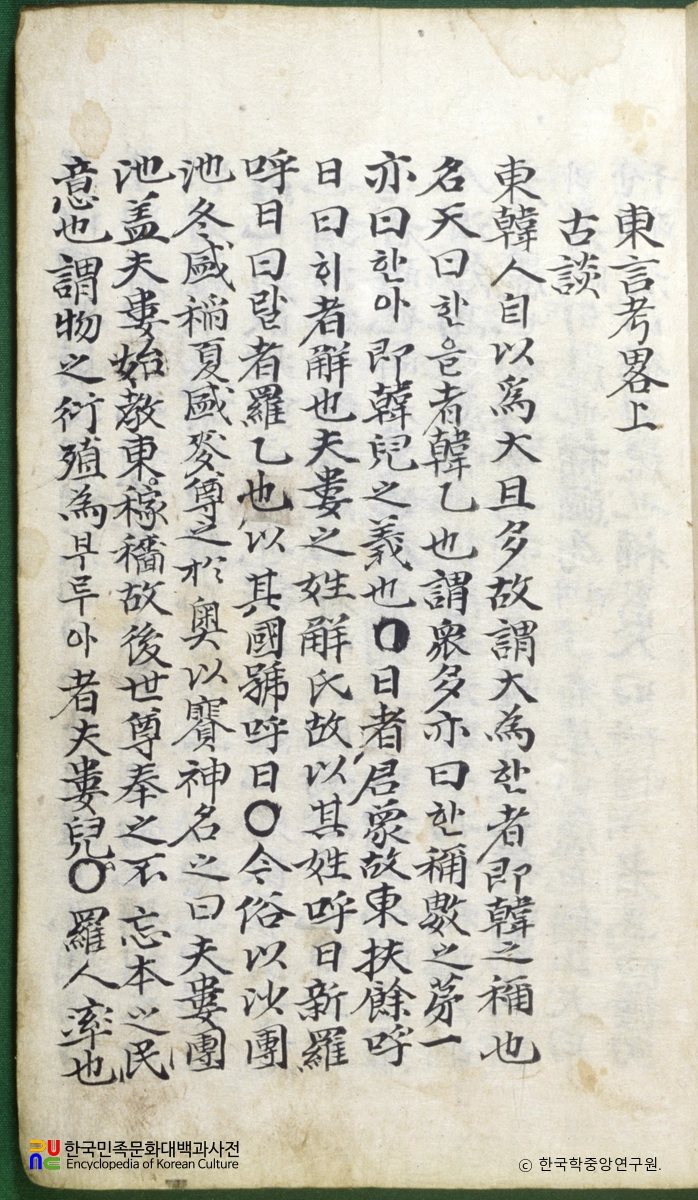 東言考畧上
古談
東韓人自以爲大且多故謂大為한者即韓之稱也
名天曰한을者韓乙也謂衆多亦曰한稱數之苐一
亦曰한아即韓兒之義也〇日者君象故東扶餘呼
日曰ᄒᆡ者解也夫婁之姓解氏故以其姓呼日新羅
呼日曰랄者羅乙也以其國號呼日〇今俗以沙團
池冬盛稲夏盛麥尊之於奧以賽神名之曰夫婁團
池盖夫婁始敎東稼穡故後世尊奉之不忘本之民
意也謂物之衍殖為부루아者夫婁兒〇羅人率也
한국민족문화대백과사전
Encyclopedia of Korean Culture
ⓒ 한국학중앙연구원.